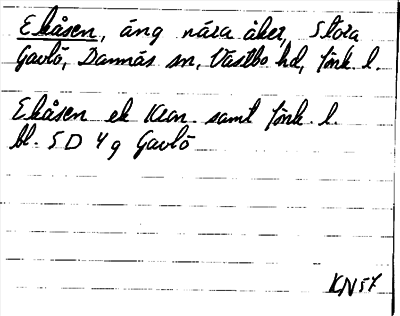 Ekåsen, äng nära åker, Stora
Gavlö, Dannäs sn, Västbo hd, Jönk. l.
Ekåsen ek Kcon. samt Jönk. l.
bl. 5D 4g Gavlö
KN57